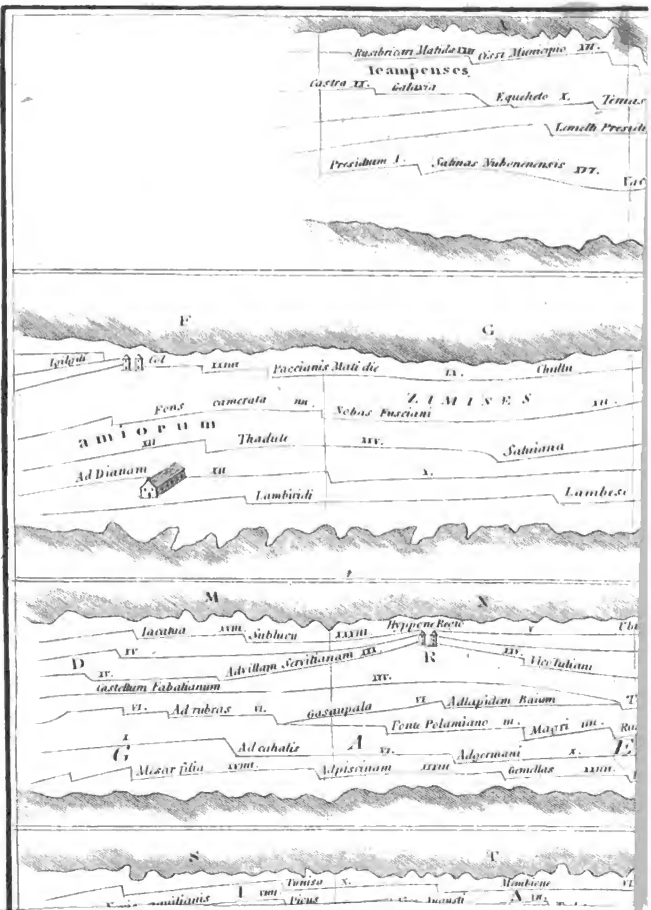 Rusibricari Matidie XXIIII Cissi Municipio XII.
Icampenses
Castra XX. Galaxia
Equeheto X. Temas
Lemelli Presidi
Presidium I. Salinas Nubonenensis XVI. Vac
F G
Igilgili Col XXIIII Paccianis Matidie IX. Chullu
ZIMISES
Fons camerata IIII. Nobas Fusciani XII.
amiorum
XII Thadute XIV. Satuiana
Ad Dianam XII X.
Lambiridi Lambese
M N
Hyppone Regio
Tacatua XVIII. Sublucu XXXIII V Ubu
XV
D Advillam Servilianam XII. R XIV. Vico Iuliani
XV.
Castellum Fabatianum XIV.
VI. Ad rubras VI. Gasaupala VI Adlapidem Baium T
Ponte Pelamiano III. Magri IIII. Ru
X
G Ad cahalis A VI. Adgermani X. E
Mesarfilia XVIII. Adpiscinam XXXIII Gemellas XXIIII.
S T
Tuniza X. Membione VI
I VIII Picus Augusti A